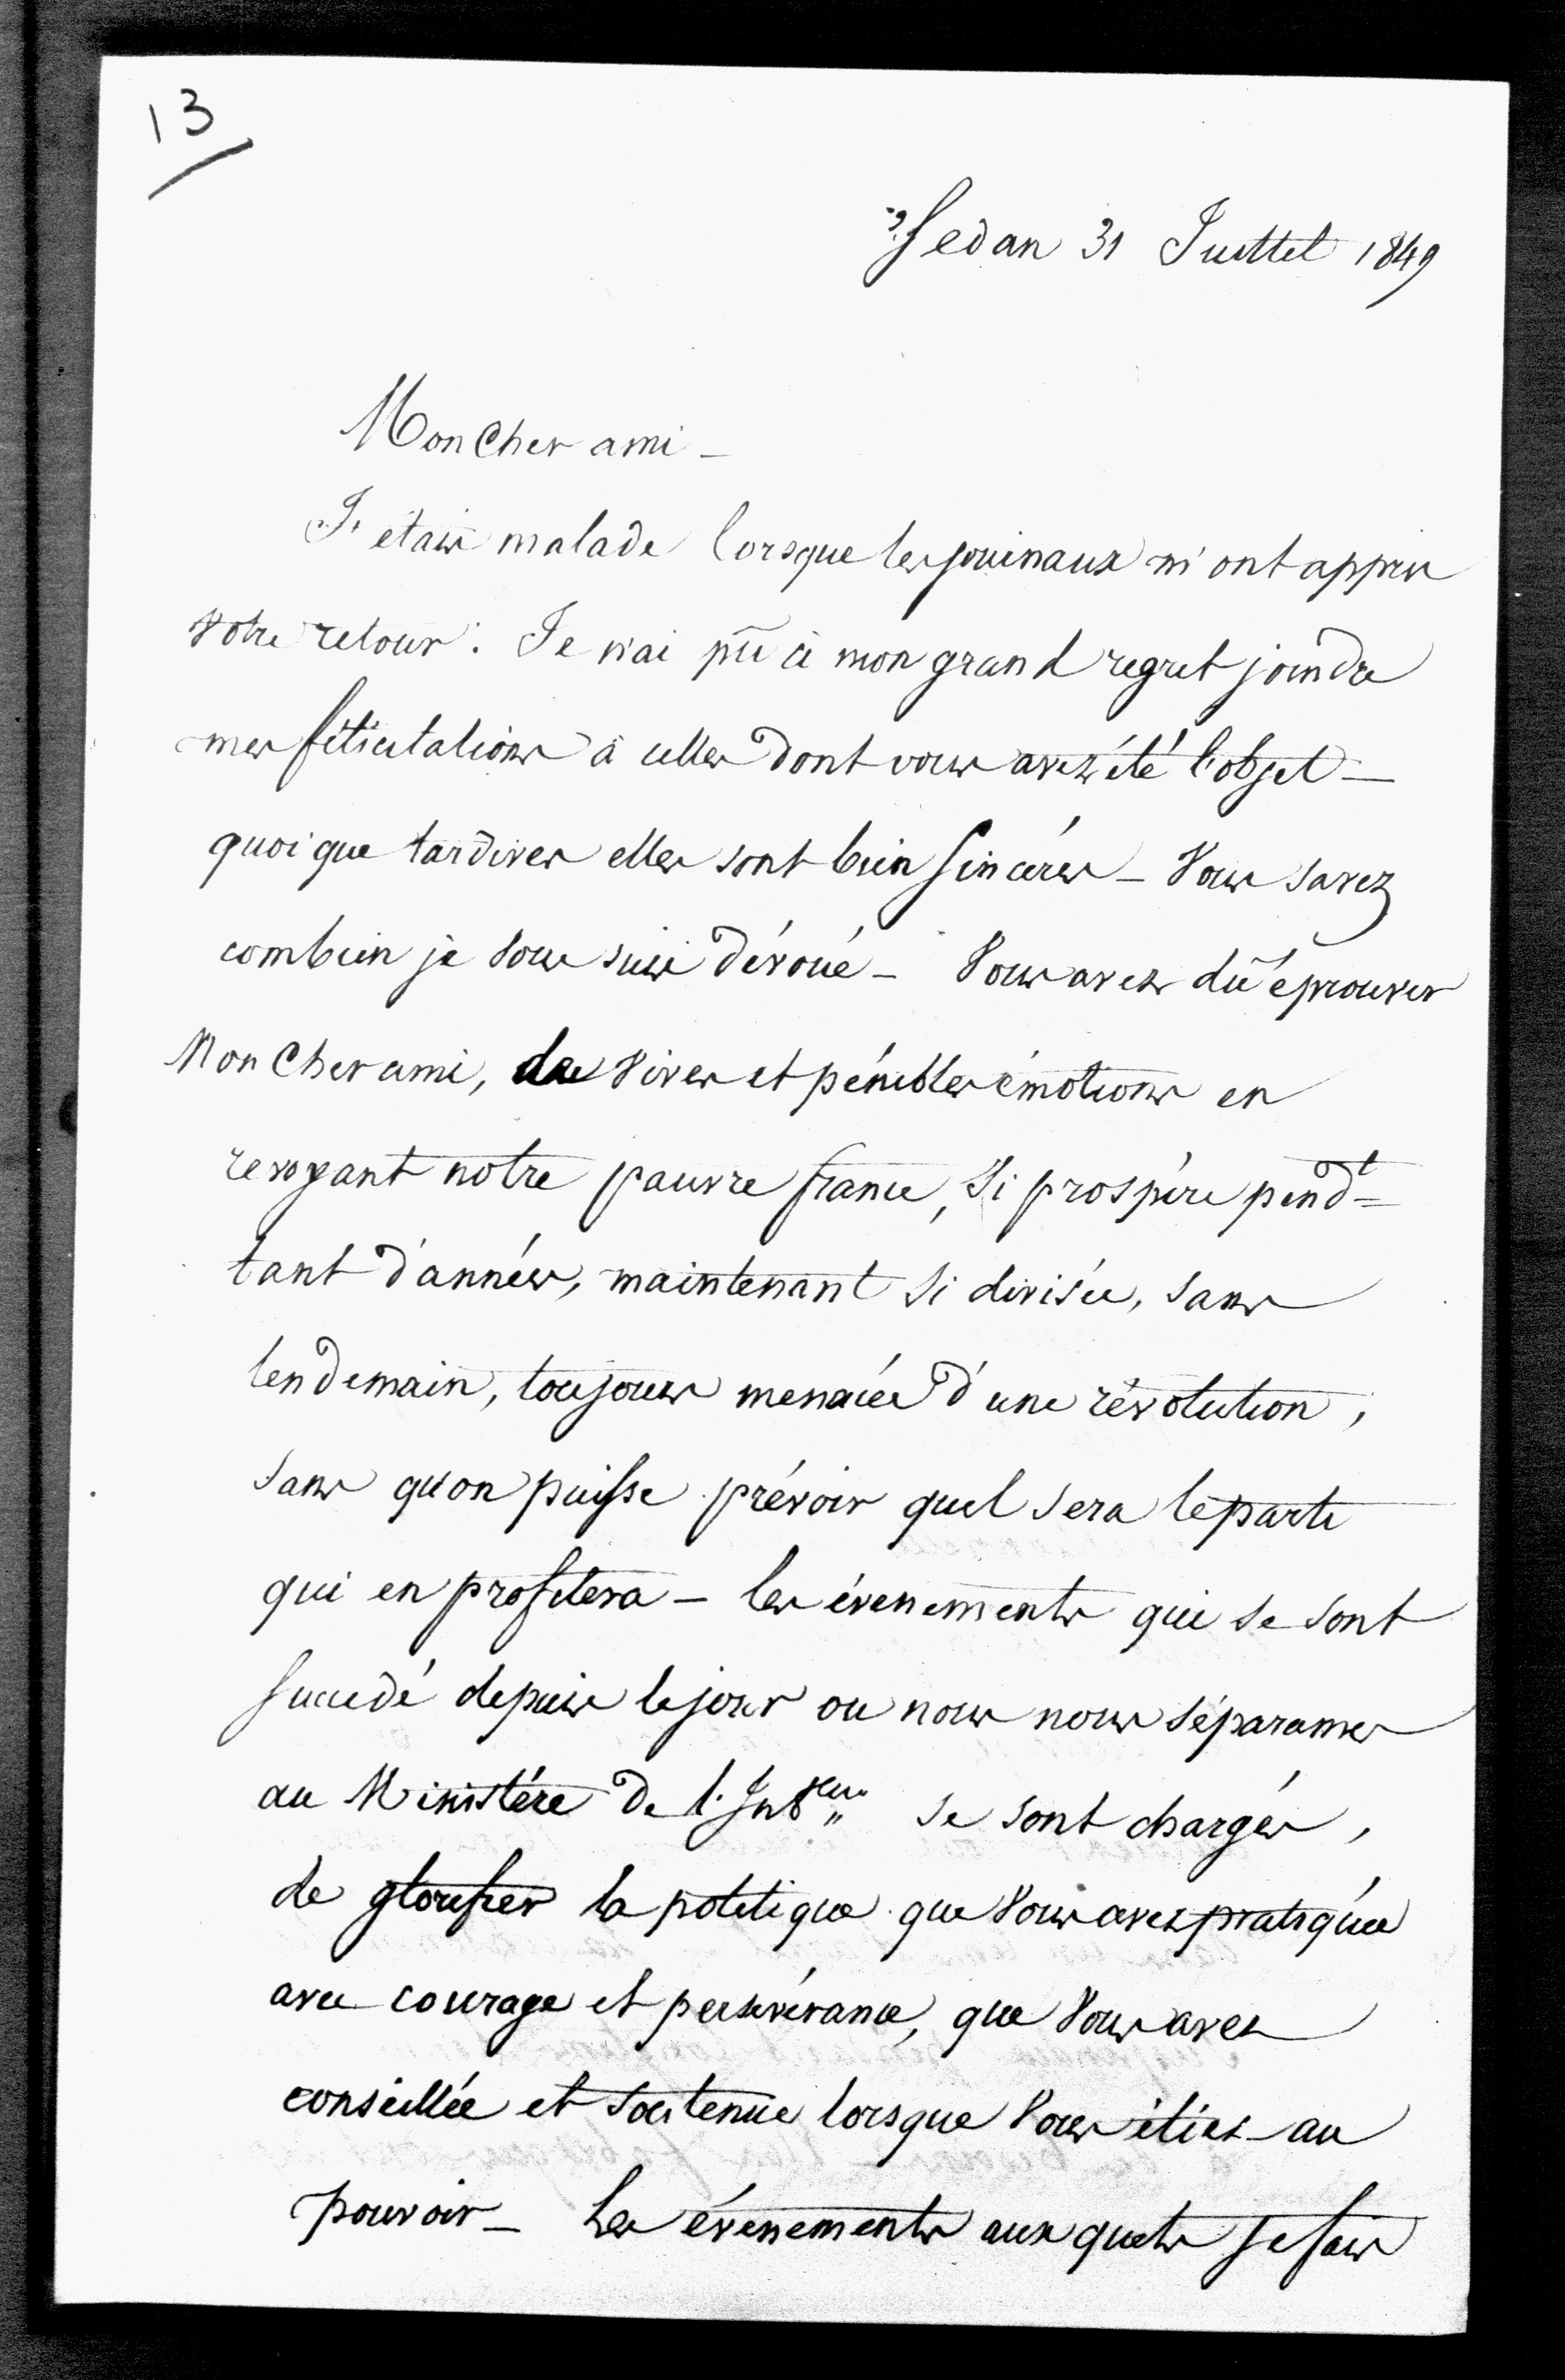 13
Sedan 31 Juillet 1849
Mon cher ami _
J'étais malade lorsque les journaux m'ont appris
votre retour. Je n'ai pû à mon grand regret joindre
mes félicitations à celles dont vous avez été l'objet _
quoique tardives elles sont bien sincères _ Vous savez
combien je vous suis dévoué _ Vous avez dû éprouver
Mon cher ami, de vives et pénibles émotions en
revoyant notre pauvre france, si prospère pendt
tant d'années, maintenant si divisée, sans
lendemain, toujours menacée d'une révolution,
sans qu'on puisse prévoir quel sera le parti
qui en profitera _ les évenements qui se sont
succedé depuis le jour ou nous nous séparames
au Ministère de l'Intérieur se sont chargés,
de glorifier la politique que vous avez pratiquée
avec courage et persévérance, que vous avez
conseillée et soutenue lorsque vous étiez au
pouvoir _ Les évenements auxquels je fais